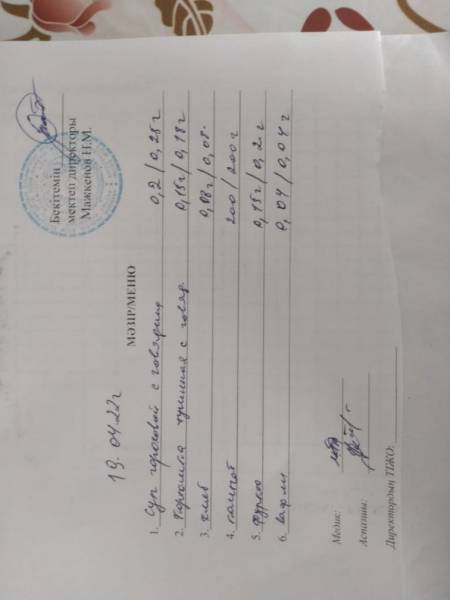 Бекітемін
мектеп директоры
Мажкенов Н.М.
МӘЗІР/МЕНЮ
19.04.22г
1. Суп гороховый с говядиной 0,2/0,25г
2. Картошка тушенная с говяд 0,15г/0,18г
3. хлеб 0,08г/0,08.
4. компот 200/200г
5. фрукты 0,15г/0,2г
6. вафли 0,04/0,04г
Медик:
Аспазшы:
Директордың ТІЖО: